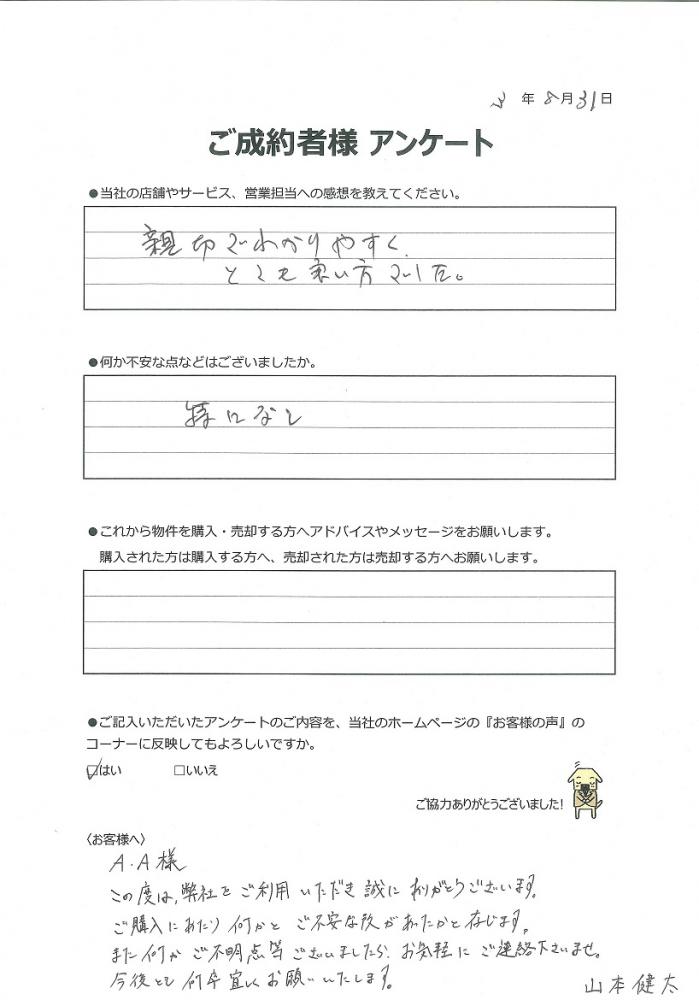 年8月31日
ご成約者様 アンケート
●当社の店舗やサービス、営業担当への感想を教えてください。
親切でわかりやすく、
とても良い方でした。
●何か不安な点などはございましたか。
特になし
●これから物件を購入・売却する方へアドバイスやメッセージをお願いします。
購入された方は購入する方へ、売却された方は売却する方へお願いします。
●ご記入いただいたアンケートのご内容を、当社のホームページの『お客様の声』の
コーナーに反映してもよろしいですか。
☑はい □いいえ
ご協力ありがとうございました！
〈お客様へ〉
A.A様
この度は、弊社をご利用いただき誠にありがとうございます。
ご購入にあたり何かとご不安な があったかと存じます。
また何かご不明点等ございましたら、お気軽にご連絡下さいませ。
今後とも何卒宜しくお願いいたします。
山本健太